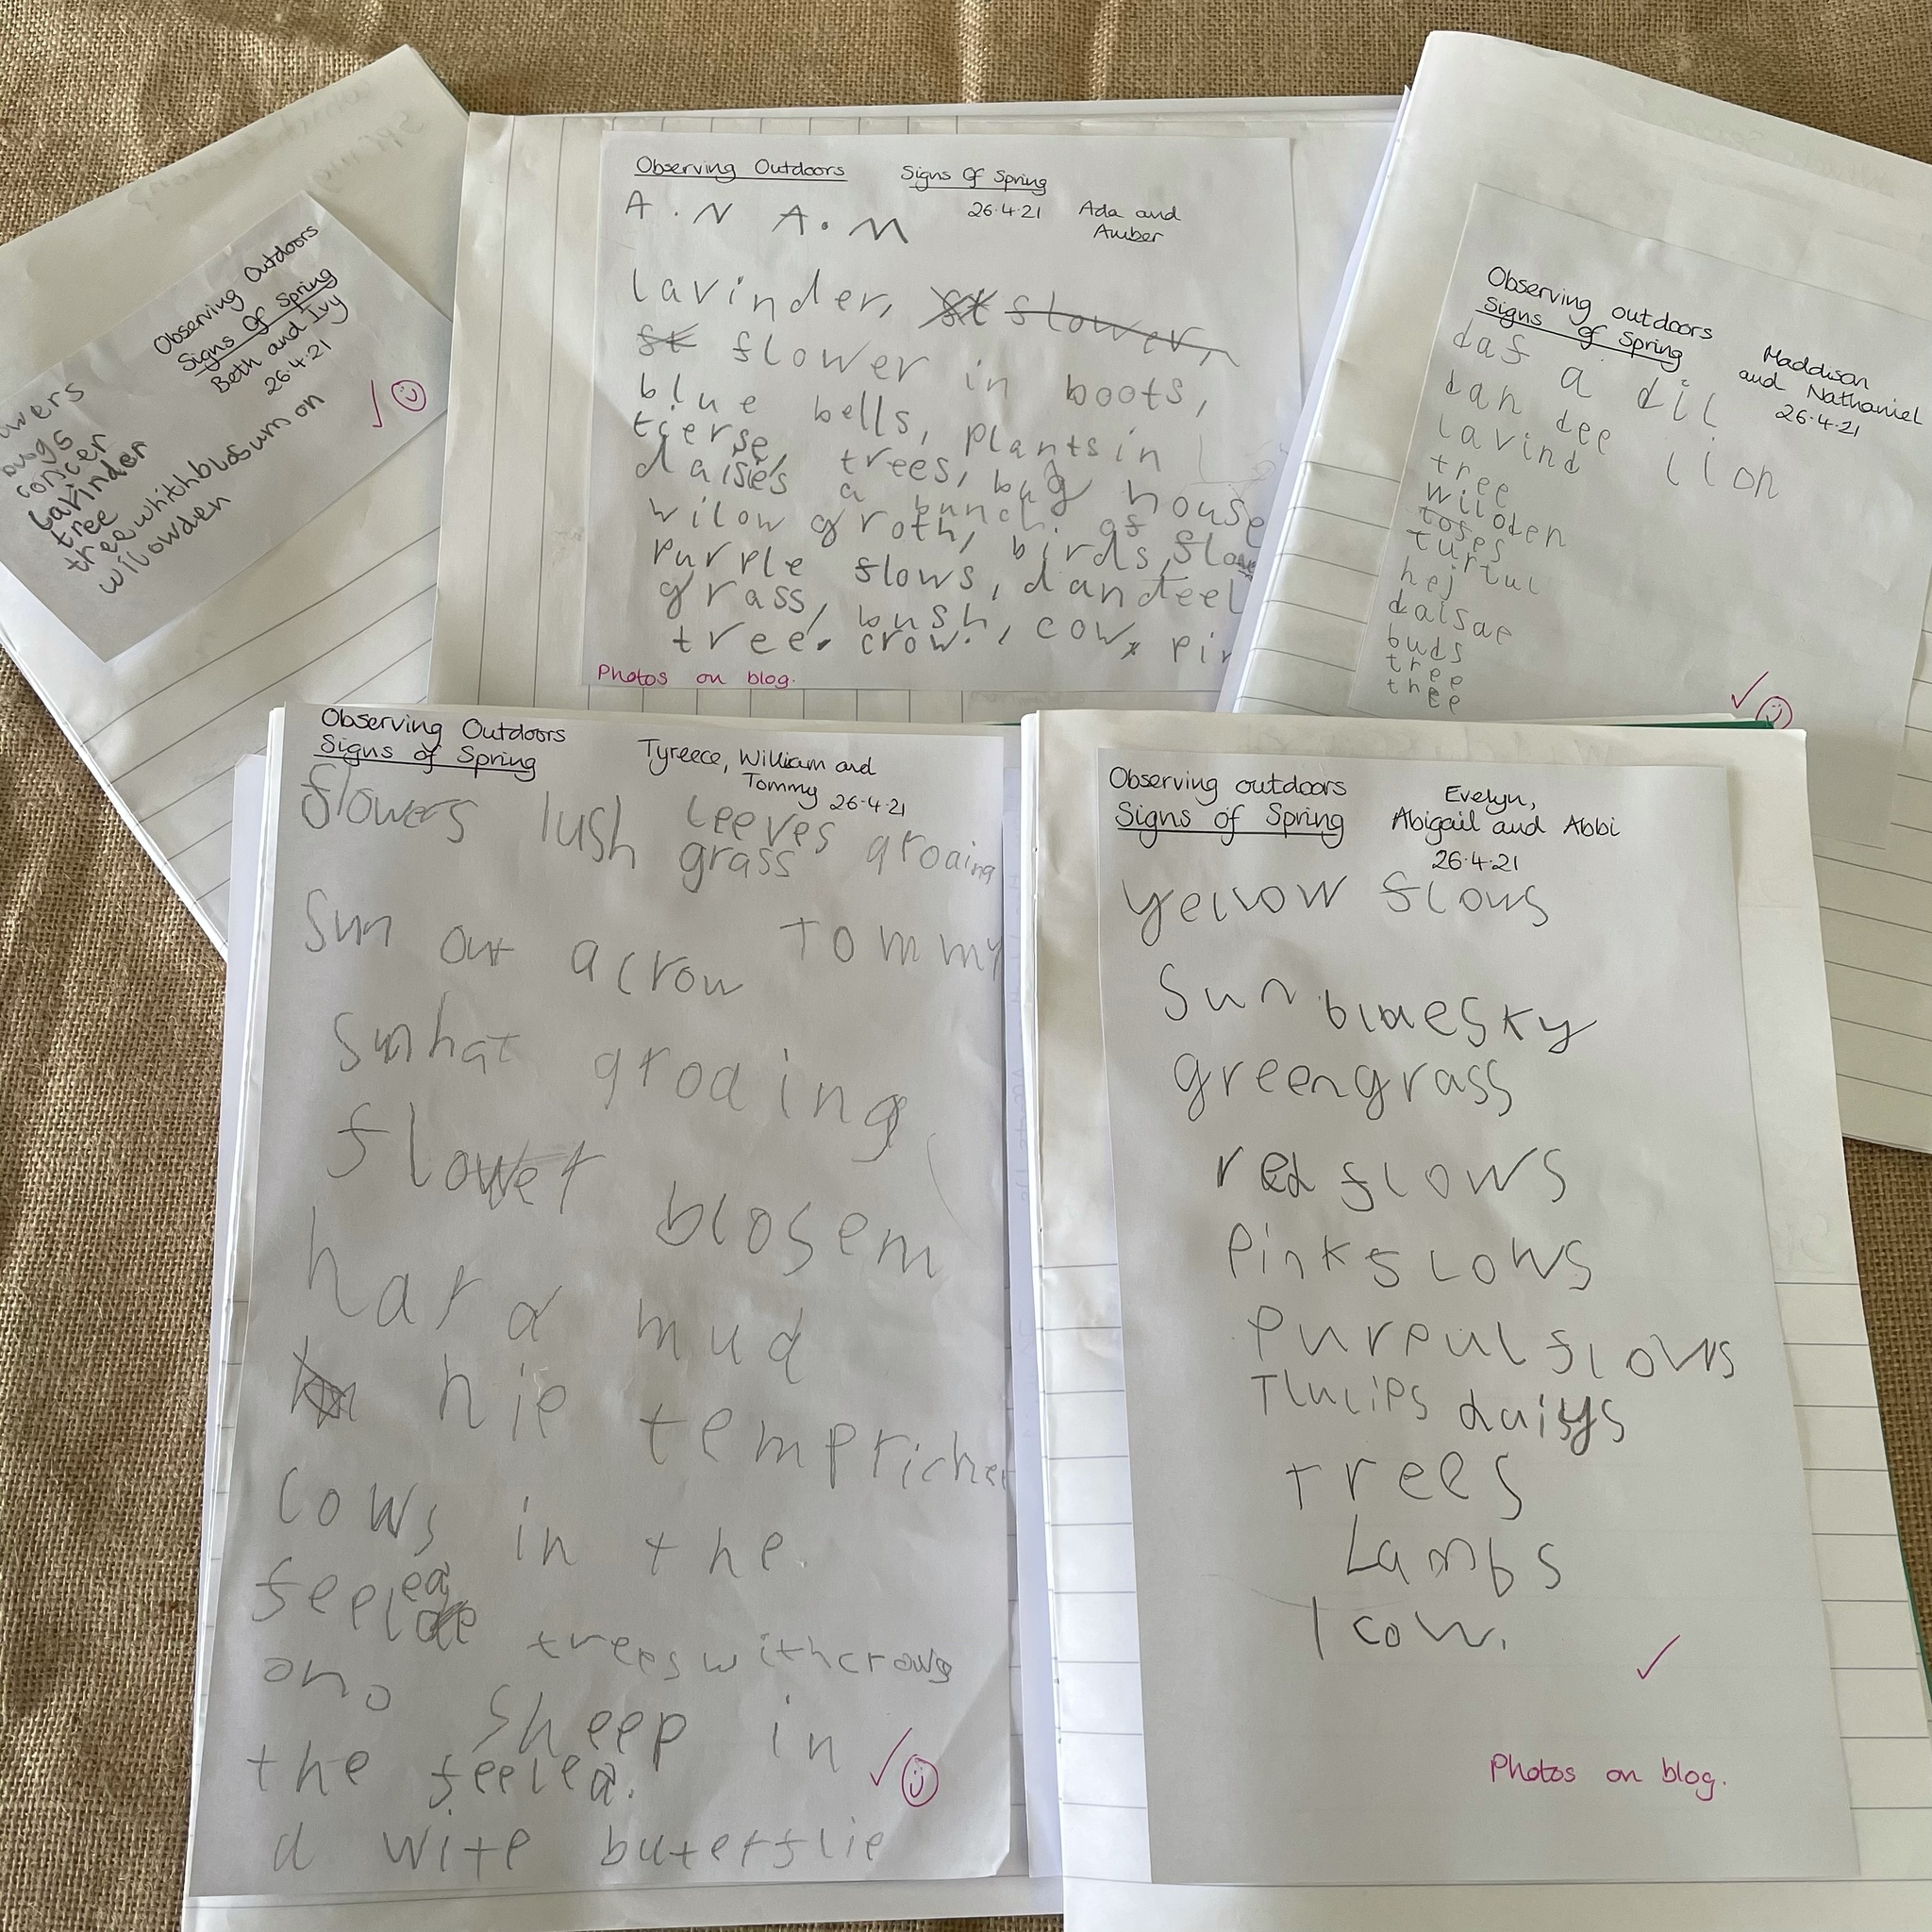 Observing Outdoors
Signs Of Spring
Beth and Ivy
26.4.21
conser
lavinder
tree
tree whith blosum on
wilowden
Observing Outdoors Signs Of Spring
26.4.21 Ada and
Amber
A.N A.M
lavinder, flower,
flower in boots,
blue bells, plants in
trees, bug house
daisies a bunch of
wilow groth, birds,
purple flows, dandeel
grass, bush, cow,
tree. crow.
Photos on blog.
Observing outdoors
Signs of Spring
Maddison
and Nathaniel
26.4.21
daf a dil
dan dee lion
lavind
tree
willoden
toses
turtul
hej
daisae
buds
tree
thee
Observing Outdoors
Signs of Spring
Tyreece, William and
Tommy 26.4.21
flowers lush leeves groaing
grass
Sun out a crow Tommy
Sunhat groaing
flower blosem
hard mud
hie tempricher
cows in the
feeled
trees with crows
on. Sheep in
the feeled.
a wite buterflie
Observing outdoors
Signs of Spring
Evelyn,
Abigail and Abbi
26.4.21
yellow flows
Sun blue sky
green grass
red flows
Pink flows
Purpul flows
Tlulips daisys
trees
Lambs
1 cow.
Photos on blog.